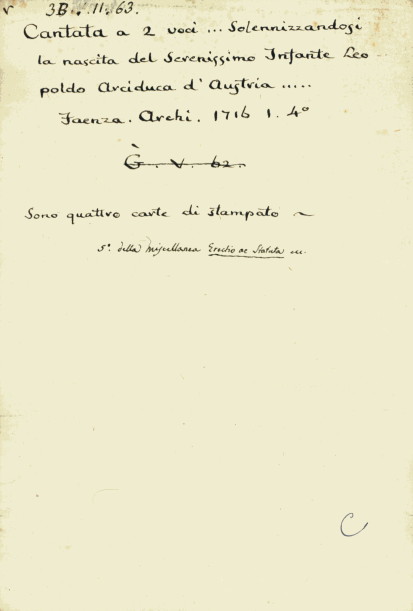 v 3B. . 11. 63.
Cantata a 2 voci ... Solennizzandosi
la nascita del Serenissimo Infante Leo
poldo Arciduca d' Austria .....
Faenza. Archi. 1716 1. 4°
G. V. 62.
Sono quattro carte di stampato ~
5°. della miscellanea Erectio ac Statuta ...
C